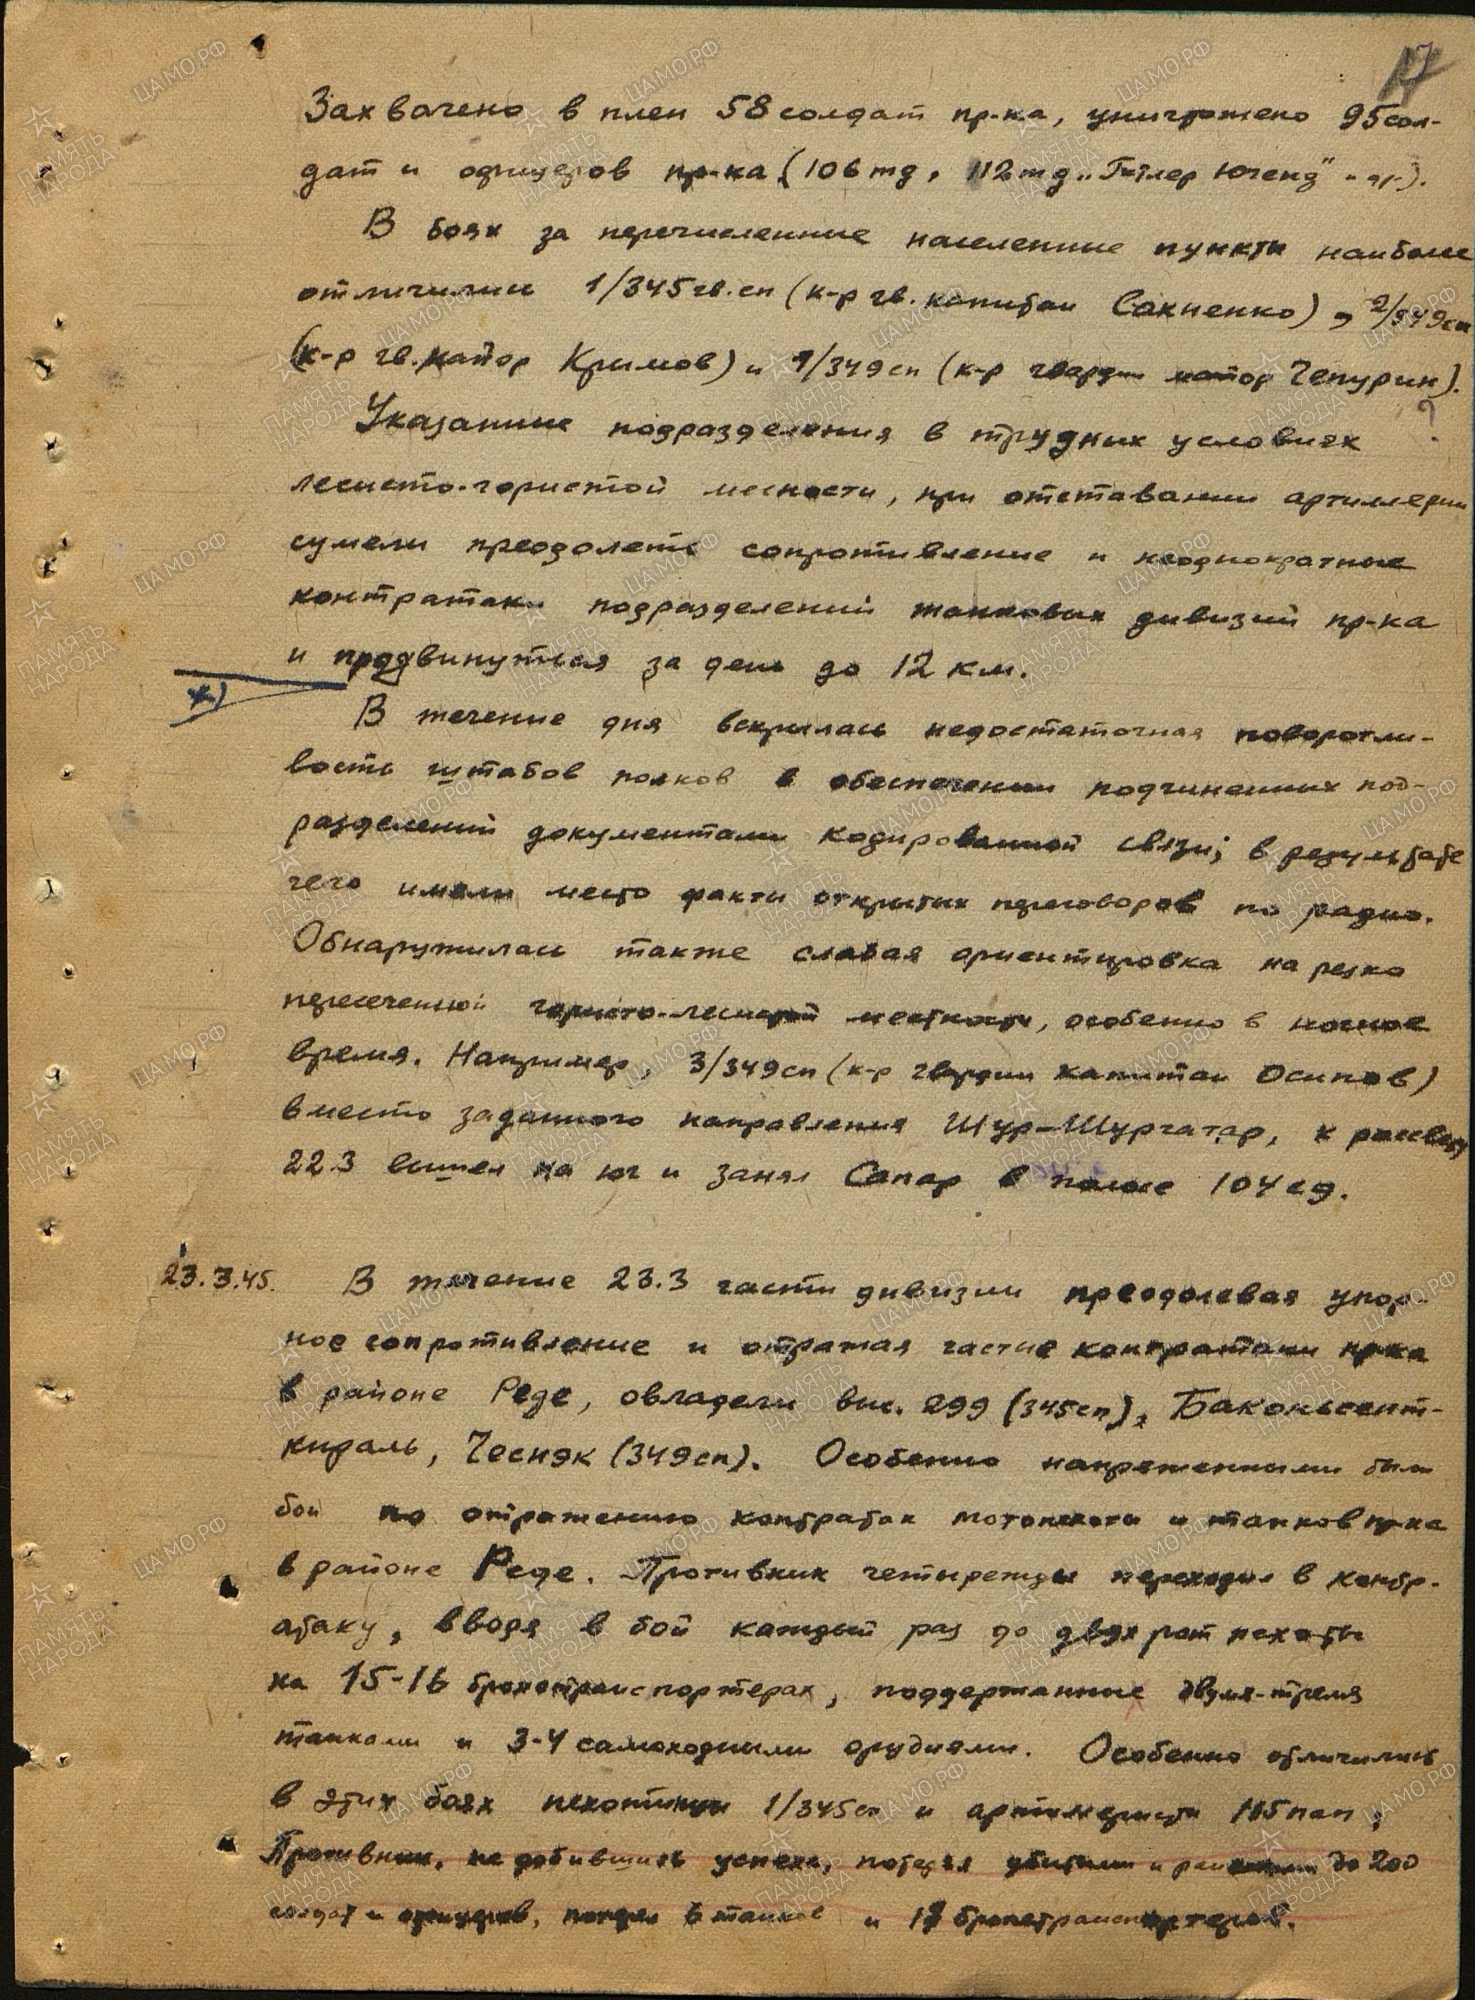 17
Захвачено в плен 58 солдат пр-ка, уничтожено 95 сол-
дат и офицеров пр-ка (106 тд, 112 тд „Гитлер Югенд" и др.).
В боях за перечисленные населенные пункты наиболее
отличились 1/345 гв. сп (к-р гв. капитан Сахненко), 2/349 сп
(к-р гв. майор Крымов) и 1/349 сп (к-р гвардии майор Чепурин).
?
Указанные подразделения в трудных условиях
лесисто-гористой месности, при отставании артиллерии
сумели преодолеть сопротивление и неоднократные
контратаки подразделений танковых дивизий пр-ка
и продвинуться за день до 12 км.
х)
В течение дня вскрылась недостаточная поворотли-
вость штабов полков в обеспечении подчиненных под-
разделений документами кодированной связи; в результате
чего имели место факты открытых переговоров по радио.
Обнаружилась также слабая ориентировка на резко
пересеченной горысто-лесистой местности, особенно в ночное
время. Например, 3/349 сп (к-р гвардии капитан Осипов)
вместо заданного направления Шур-Шургатар, к рассвету
22.3 вышел на юг и занял Сапар в полосе 104 сд.
23.3.45. В течение 23.3 части дивизии преодолевая упор-
ное сопротивление и отражая частые контратаки пр-ка
в районе Реде, овладели выс. 299 (345 сп), Баконьсент-
кираль, Чеснэк (349 сп). Особенно напряженными были
бои по отражению контратак мотопехоты и танков пр-ка
в районе Реде. Противник четырежды переходил в контр-
атаку, вводя в бой каждый раз до двух рот пехоты
на 15-16 бронетранспортерах, поддержанные двумя-тремя
танками и 3-4 самоходными орудиями. Особенно отличились
в этих боях пехотинцы 1/345 сп и артиллеристы 115 пап.
Противник, не добившись успеха, потерял убитыми и ранеными до 200
солдат и офицеров, потерял 6 танков и бронетранспортеров.
ЦАМО.РФ
ПАМЯТЬ НАРОДА